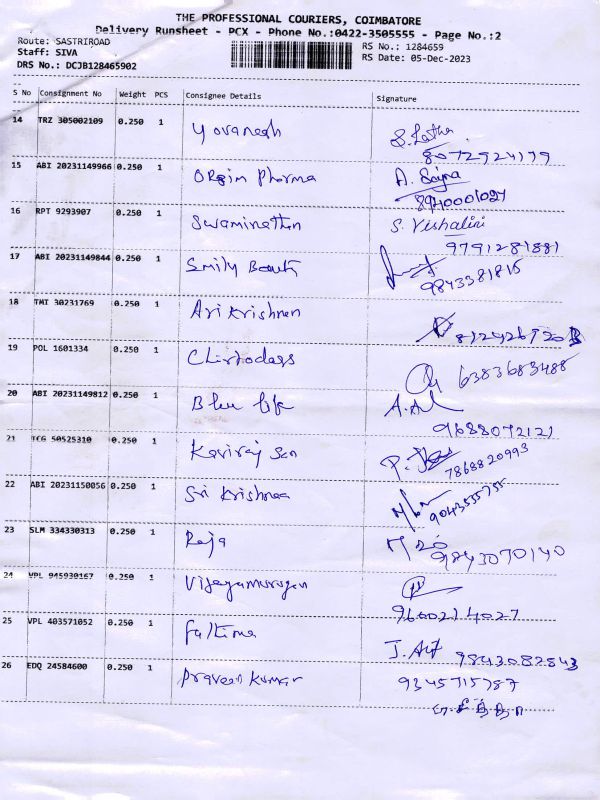 THE PROFESSIONAL COURIERS, COIMBATORE
Delivery Runsheet - PCX - Phone No.:0422-3505555 - Page No.:2
Route: SASTRIROAD
Staff: SIVA
DRS No.: DCJB128465902
RS No.: 1284659
RS Date: 05-Dec-2023
S No Consignment No Weight PCS Consignee Details Signature
14 TRZ 305002109 0.250 1 Yovanesh S. Latha
8072924179
15 ABI 20231149966 0.250 1 Orgim Pharma A. Sajna
8940001021
16 RPT 9293907 0.250 1 Swaminathan S. Vishalini
9791281881
17 ABI 20231149844 0.250 1 Smily Beauty
9843381815
18 TMI 30231769 0.250 1 Ari Krishnan
19 POL 1601334 0.250 1
6383683488
20 ABI 20231149812 0.250 1 Blue life
9688072121
21 TCG 50525310 0.250 1 Kaviraj San
7868820993
22 ABI 20231150056 0.250 1 Sri Krishnaa
9043555755
23 SLM 334330313 0.250 1 Raja
9843070140
24 VPL 945930167 0.250 1 Vijayamurugan
9600214027
25 VPL 403571052 0.250 1 Fathima J. Arif
9843082843
26 EDQ 24584600 0.250 1 Praveen Kumar 9345715787